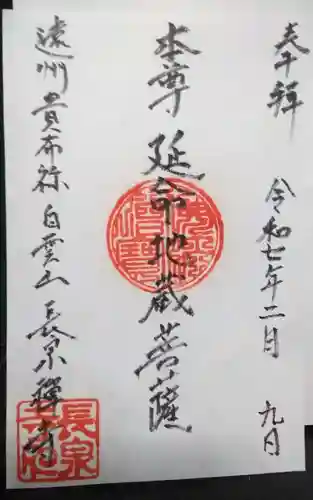 奉拝 令和七年二月九日
本尊 延命地蔵菩薩
遠州貴布祢白雲山長泉禅寺